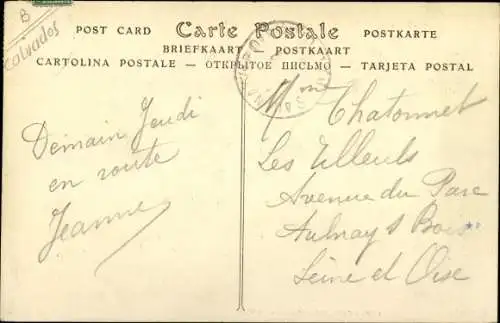 B
Calvados
POST CARD Carte Postale POSTKARTE
BRIEFKAART POSTKAART
CARTOLINA POSTALE – ОТКРЫТОЕ ПИСЬМО – TARJETA POSTAL
Demain Jeudi
en route
Jeanne
Mme Chatonnet
Les Tilleuls
Avenue du Parc
Aulnay s Bois
Seine et Oise